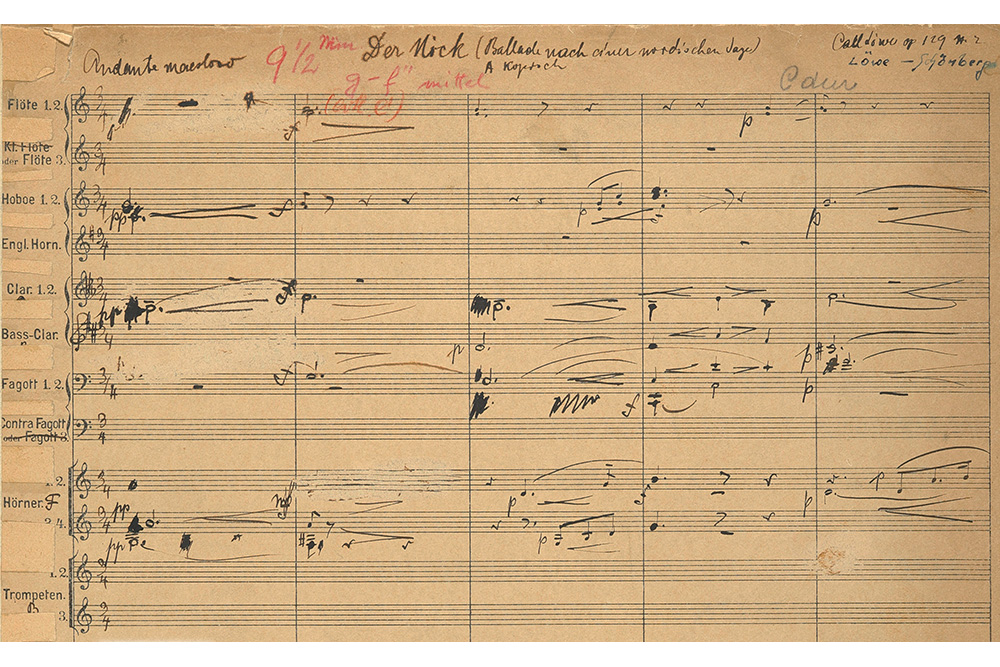 Andante maestoso 9 1/2 Min Der Nöck (Ballade nach einer nordischen Sage) Carl Löwe op 129 Nr. 2
A Kopisch
Löwe – Schönberg
g – f" mittel
C dur
Flöte 1.2.
p
Kl. Flöte
oder Flöte 3.
Hoboe 1.2.
pp
p
p
Engl. Horn.
Clar. 1.2.
pp
Bass-Clar.
p
p
Fagott 1.2.
p
Contra Fagott
oder Fagott 3.
1.2.
pp
p
p
p
Hörner. F
3.4.
pp
p
1.2.
Trompeten.
B
3.